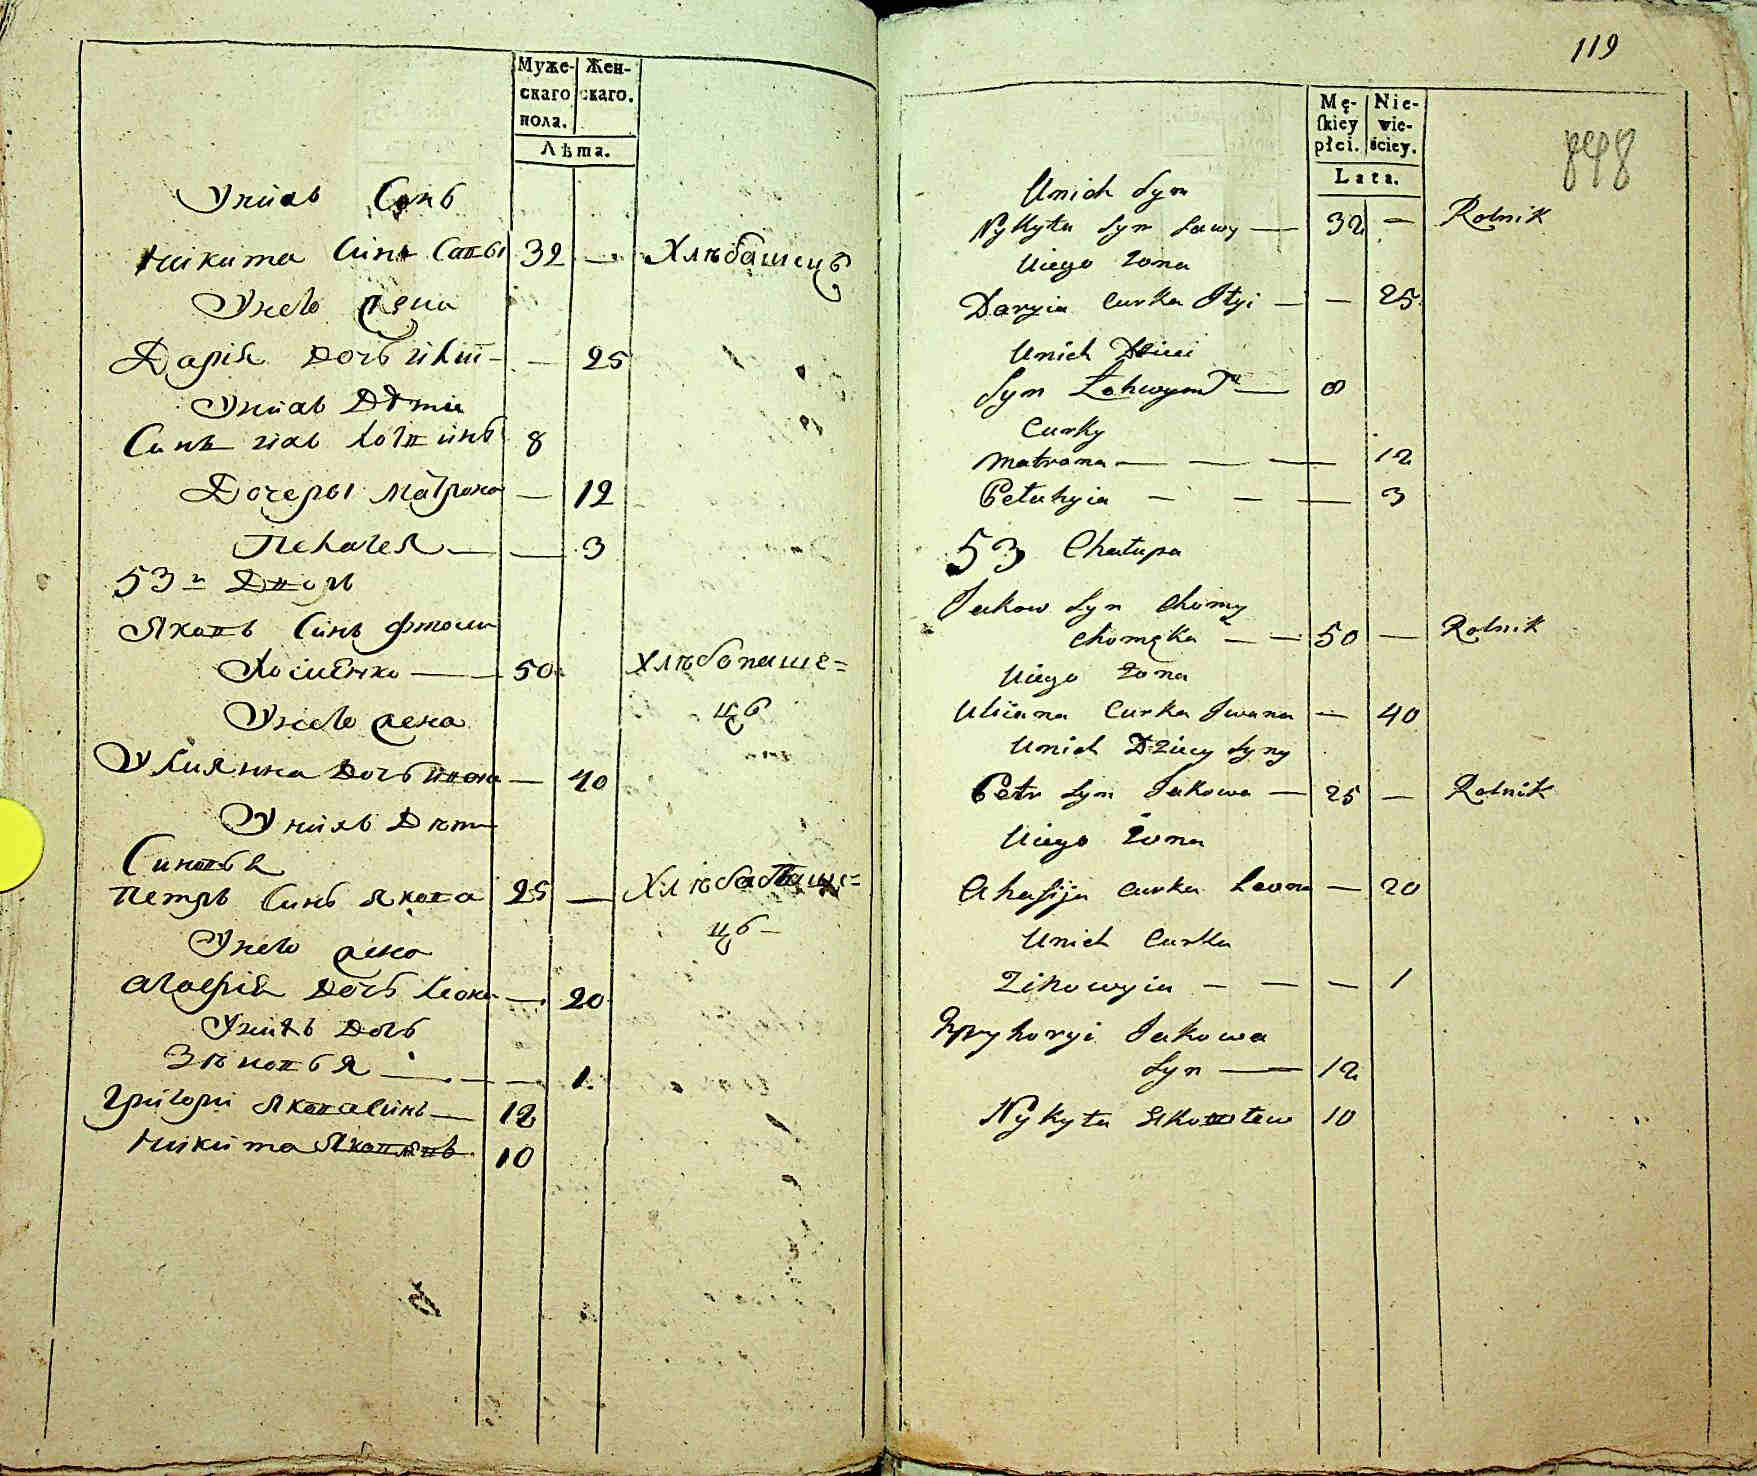 Муже- Жен-
скаго скаго.
пола.
Лѣта.
Унихъ Синъ
Никита Синъ Савы 32 — Хлѣбашецъ
Унего жена
Дарія Дочь — 25
Унихъ Дѣти
Синъ 8
Дочеры Матрона — 12
Пелагея — — 3
53 й Дворъ
Яковъ Синъ Фтоми
Хоменко — 50 Хлѣбопаше=
цъ
Унего жена
Улиянна Дочь Ивана — 40
Унихъ Дѣти
Синовья
Петръ Синъ Якова 25 — Хлѣбапаше=
цъ —
Унего жена
Агафия Дочь Леона — 20
Унихъ Дочь
Зѣновья — — — 1
Григори Якова Синъ — 12
Никита 10
119
Mę- Nie-
ſkiey wie-
płci. ściey.
Lata.
Unich Syn
Nykyta Syn Sawy — 32 — Rolnik
Uiego Zona
Daryia Curka — — 25
Unich Dzieci
Syn — 8
Curky
Matrona — — — 12
Pelahyia — — — 3
53 Chatupa
Jakow Syn Chomy
Chomęka — — 50 — Rolnik
Uiego Zona
Uliana Curka Jwana — 40
Unich Dziecy Syny
Petr Syn Jakowa — 25 — Rolnik
Uiego Żona
Ahafija Curka Leona — 20
Unich Curka
Zinowyia — — — 1
Hryhoryi Jakowa
Syn — 12
Nykyta 10